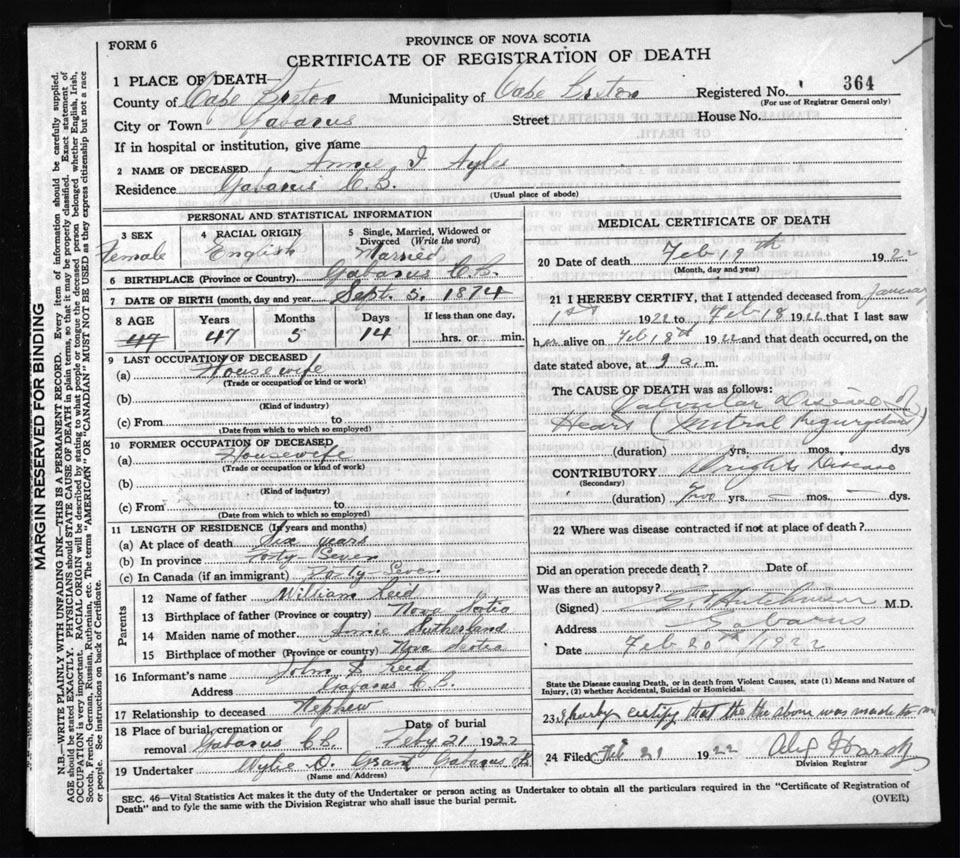 FORM 6
PROVINCE OF NOVA SCOTIA
CERTIFICATE OF REGISTRATION OF DEATH
1 PLACE OF DEATH—
County of Cape Breton Municipality of Cape Breton Registered No. 364
(For use of Registrar General only)
City or Town Gabarus Street House No.
If in hospital or institution, give name
2 NAME OF DECEASED Annie I Ayles
Residence Gabarus C.B.
(Usual place of abode)
PERSONAL AND STATISTICAL INFORMATION
3 SEX 4 RACIAL ORIGIN 5 Single, Married, Widowed or Divorced (Write the word)
Female English Married
6 BIRTHPLACE (Province or Country) Gabarus C.B.
7 DATE OF BIRTH (month, day and year) Sept. 5. 1874
8 AGE Years Months Days If less than one day,
47 47 5 14 hrs. or min.
9 LAST OCCUPATION OF DECEASED
(a) Housewife
(Trade or occupation or kind or work)
(b)
(Kind of industry)
(c) From to
(Date from which to which so employed)
10 FORMER OCCUPATION OF DECEASED
(a) Housewife
(Trade or occupation or kind or work)
(b)
(Kind of industry)
(c) From to
(Date from which to which so employed)
11 LENGTH OF RESIDENCE (In years and months)
(a) At place of death Six years
(b) In province Forty-Seven
(c) In Canada (if an immigrant) Forty Seven
Parents
12 Name of father William Reid
13 Birthplace of father (Province or country) Nova Scotia
14 Maiden name of mother Annie Sutherland
15 Birthplace of mother (Province or country) Nova Scotia
16 Informant's name John Reed
Address Gabarus C.B.
17 Relationship to deceased Nephew
18 Place of burial, cremation or removal Gabarus C.B. Date of burial Feby 21 1922
19 Undertaker Wylie D. Grant Gabarus C.B.
(Name and Address)
MEDICAL CERTIFICATE OF DEATH
20 Date of death Feb 19th 1922
(Month, day and year)
21 I HEREBY CERTIFY, that I attended deceased from January
1st 1922 to Feb 18 1922 that I last saw
her alive on Feb 18th 1922 and that death occurred, on the
date stated above, at 9 a. m.
The CAUSE OF DEATH was as follows:
Valvular Disease of
Heart (Mitral Regurgitation)
(duration) yrs. mos. dys
CONTRIBUTORY Brights Disease
(Secondary)
(duration) Two yrs. — mos. — dys.
22 Where was disease contracted if not at place of death?
Did an operation precede death? Date of
Was there an autopsy?
(Signed) Hutchinson M.D.
Address Gabarus
Date Feb 20th /1922
State the Disease causing Death, or in death from Violent Causes, state (1) Means and Nature of
Injury, (2) whether Accidental, Suicidal or Homicidal.
23 I hereby certify that the the above was made to me
24 Filed Feb 21 1922
Division Registrar
SEC. 46—Vital Statistics Act makes it the duty of the Undertaker or person acting as Undertaker to obtain all the particulars required in the "Certificate of Registration of
Death" and to fyle the same with the Division Registrar who shall issue the burial permit.
(OVER)
MARGIN RESERVED FOR BINDING
N.B.—WRITE PLAINLY WITH UNFADING INK.—THIS IS A PERMANENT RECORD. Every item of information should be carefully supplied.
AGE should be stated EXACTLY. PHYSICIANS should STATE CAUSE OF DEATH in plain terms, so that it may be properly classified. Exact statement of
OCCUPATION is very important. RACIAL ORIGIN will be described by stating to what people or tongue the deceased person belonged whether English, Irish,
Scotch, French, German, Russian, Ruthenian, etc. The terms "AMERICAN" OR "CANADIAN" MUST NOT BE USED as they express citizenship but not a race
or people. See instructions on back of Certificate.